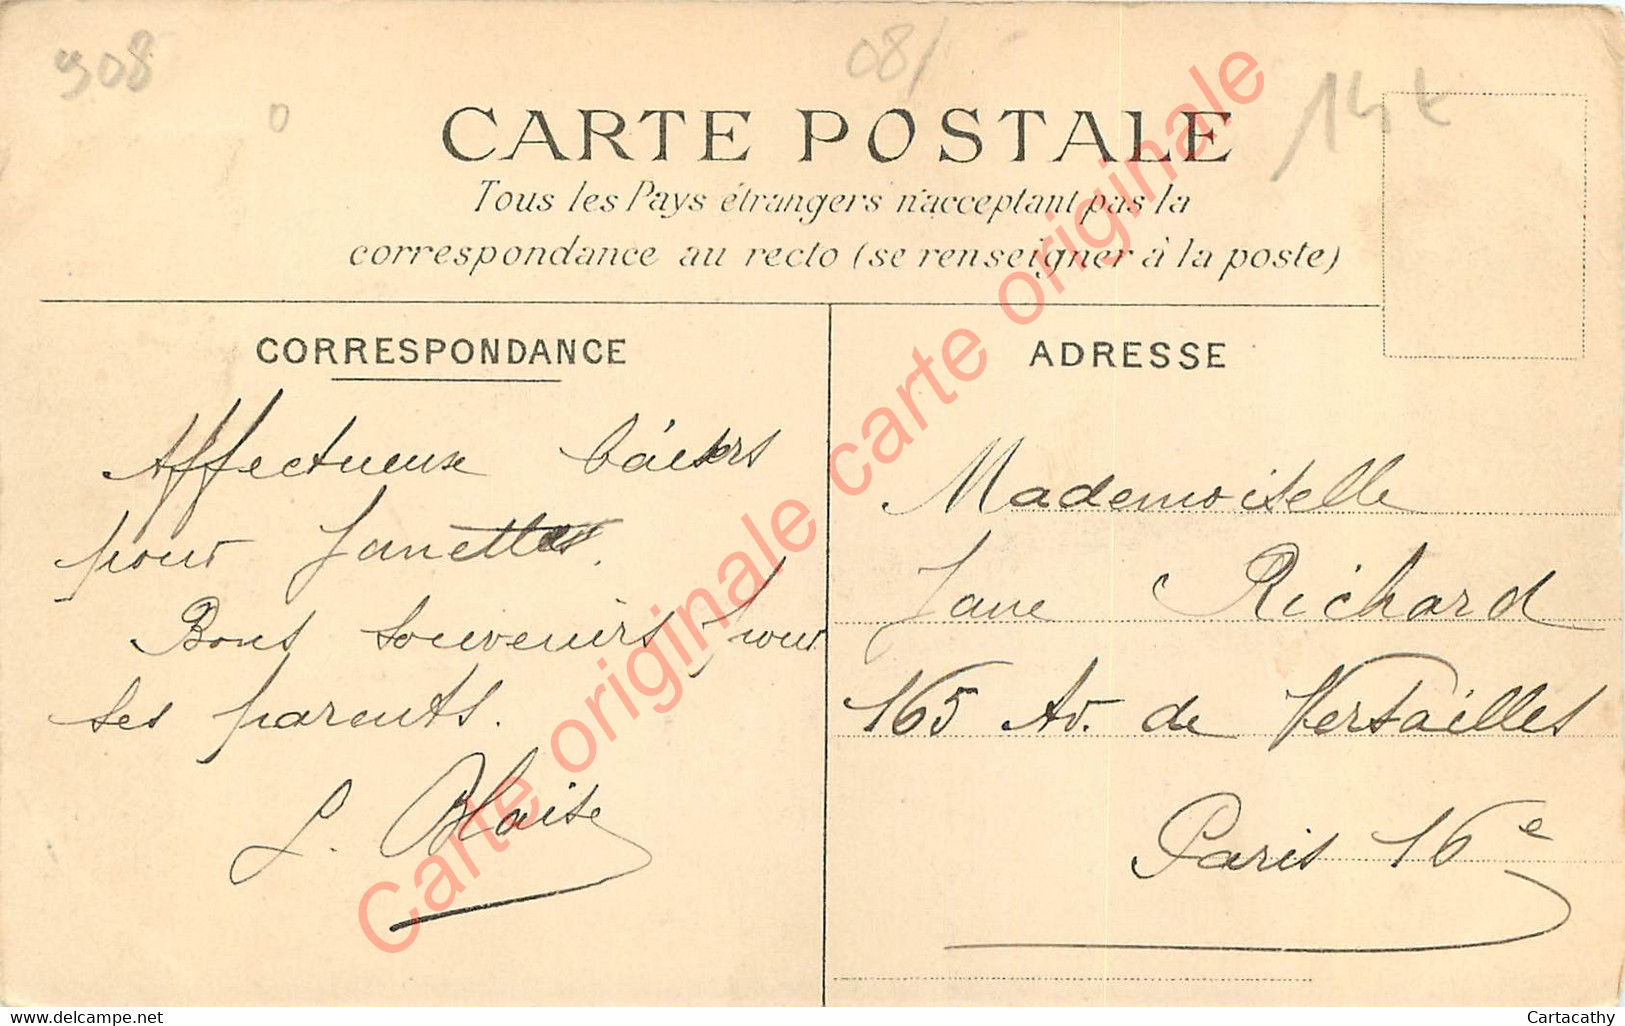 908
08/
CARTE POSTALE
Tous les Pays étrangers n'acceptant pas la
correspondance au recto (se renseigner à la poste)
CORRESPONDANCE
ADRESSE
Affectueux baisers
pour Janette.
Bons souvenirs pour
ses parents.
L. Blaise
Mademoiselle
Jane Richard
165 Av. de Versailles
Paris 16e
Carte originale carte originale
www.delcampe.net
Cartacathy